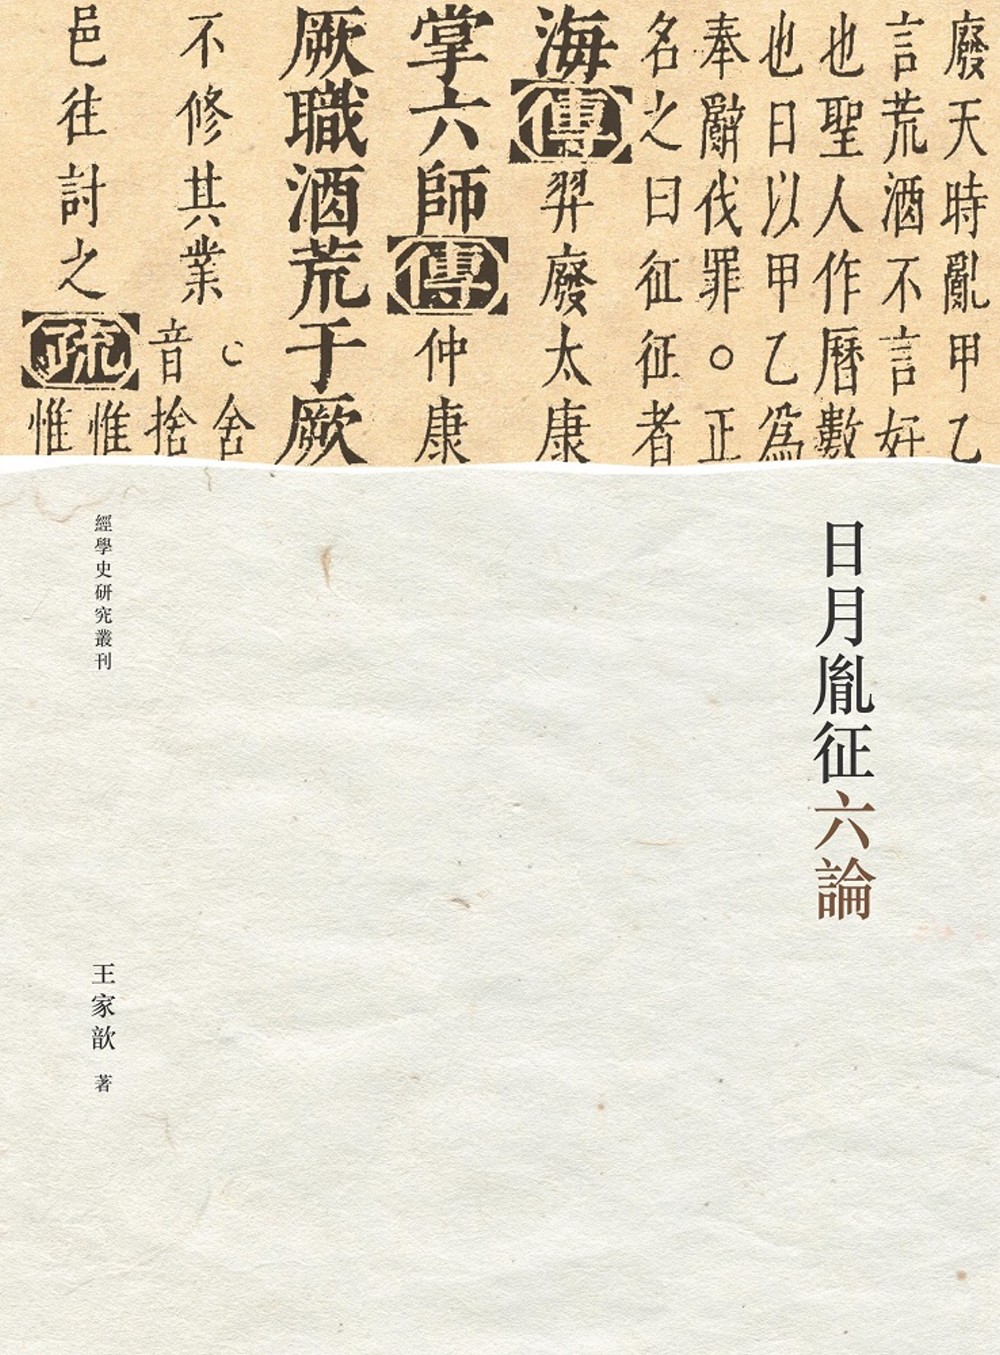 廢天時亂甲乙
言荒酒不言好
也聖人作曆數
也日以甲乙為
奉辭伐罪○正
名之曰征征者
海傳羿廢太康
掌六師傳仲康
厥職酒荒于厥
不修其業
舍
音捨
邑往討之疏惟
惟
日月胤征六論
經學史研究叢刊
王家歆 著